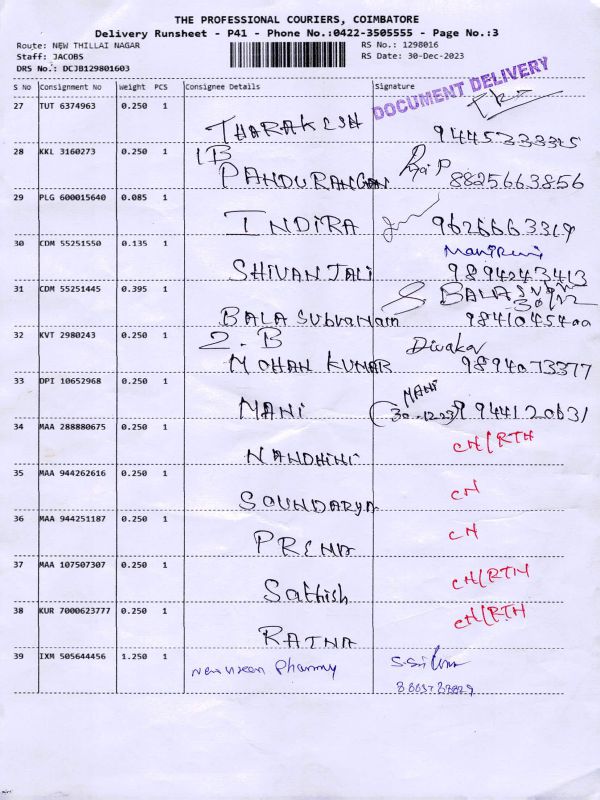 THE PROFESSIONAL COURIERS, COIMBATORE
Delivery Runsheet - P41 - Phone No.:0422-3505555 - Page No.:3
Route: NEW THILLAI NAGAR
RS No.: 1298016
Staff: JACOBS
RS Date: 30-Dec-2023
DRS No.: DCJB129801603
S No Consignment No Weight PCS Consignee Details Signature
DOCUMENT DELIVERY
27 TUT 6374963 0.250 1
THARAKESH
28 KKL 3160273 0.250 1
1B
PANDURANGAN 8825663856
29 PLG 600015640 0.085 1
INDIRA 9626663319
30 CDM 55251550 0.135 1
SHIVANJALI 9894243413
31 CDM 55251445 0.395 1
S. BALA
BALASubvaNam 9841045400
32 KVT 2980243 0.250 1
2.B
Diwakar
MOHAN KUMAR 9894073377
33 DPI 10652968 0.250 1
MANI
MANI (30-12-23) 9944120631
34 MAA 288880675 0.250 1
CN/RTH
NANDHINI
35 MAA 944262616 0.250 1
CN
SOUNDARYA
36 MAA 944251187 0.250 1
CN
PREMA
37 MAA 107507307 0.250 1
CN/RTH
Sathish
38 KUR 7000623777 0.250 1
CN/RTH
RATNA
39 IXM 505644456 1.250 1
Pharmacy